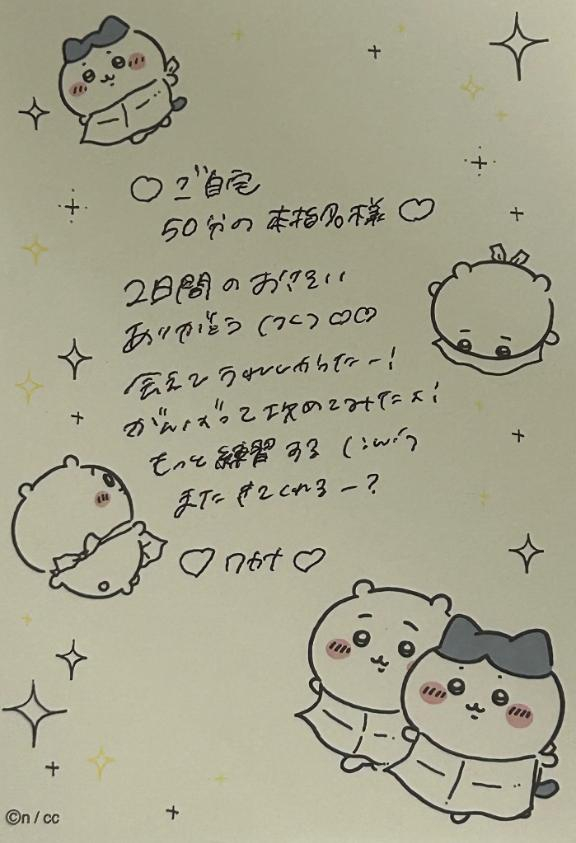 ♡ ご自宅
50分の本指名様 ♡
2日間の
ありがとう ♡♡
会えてうれしかったー!
がんばって次の
もっと練習する
またきてくれるー?
♡ ワカナ ♡
©n / cc